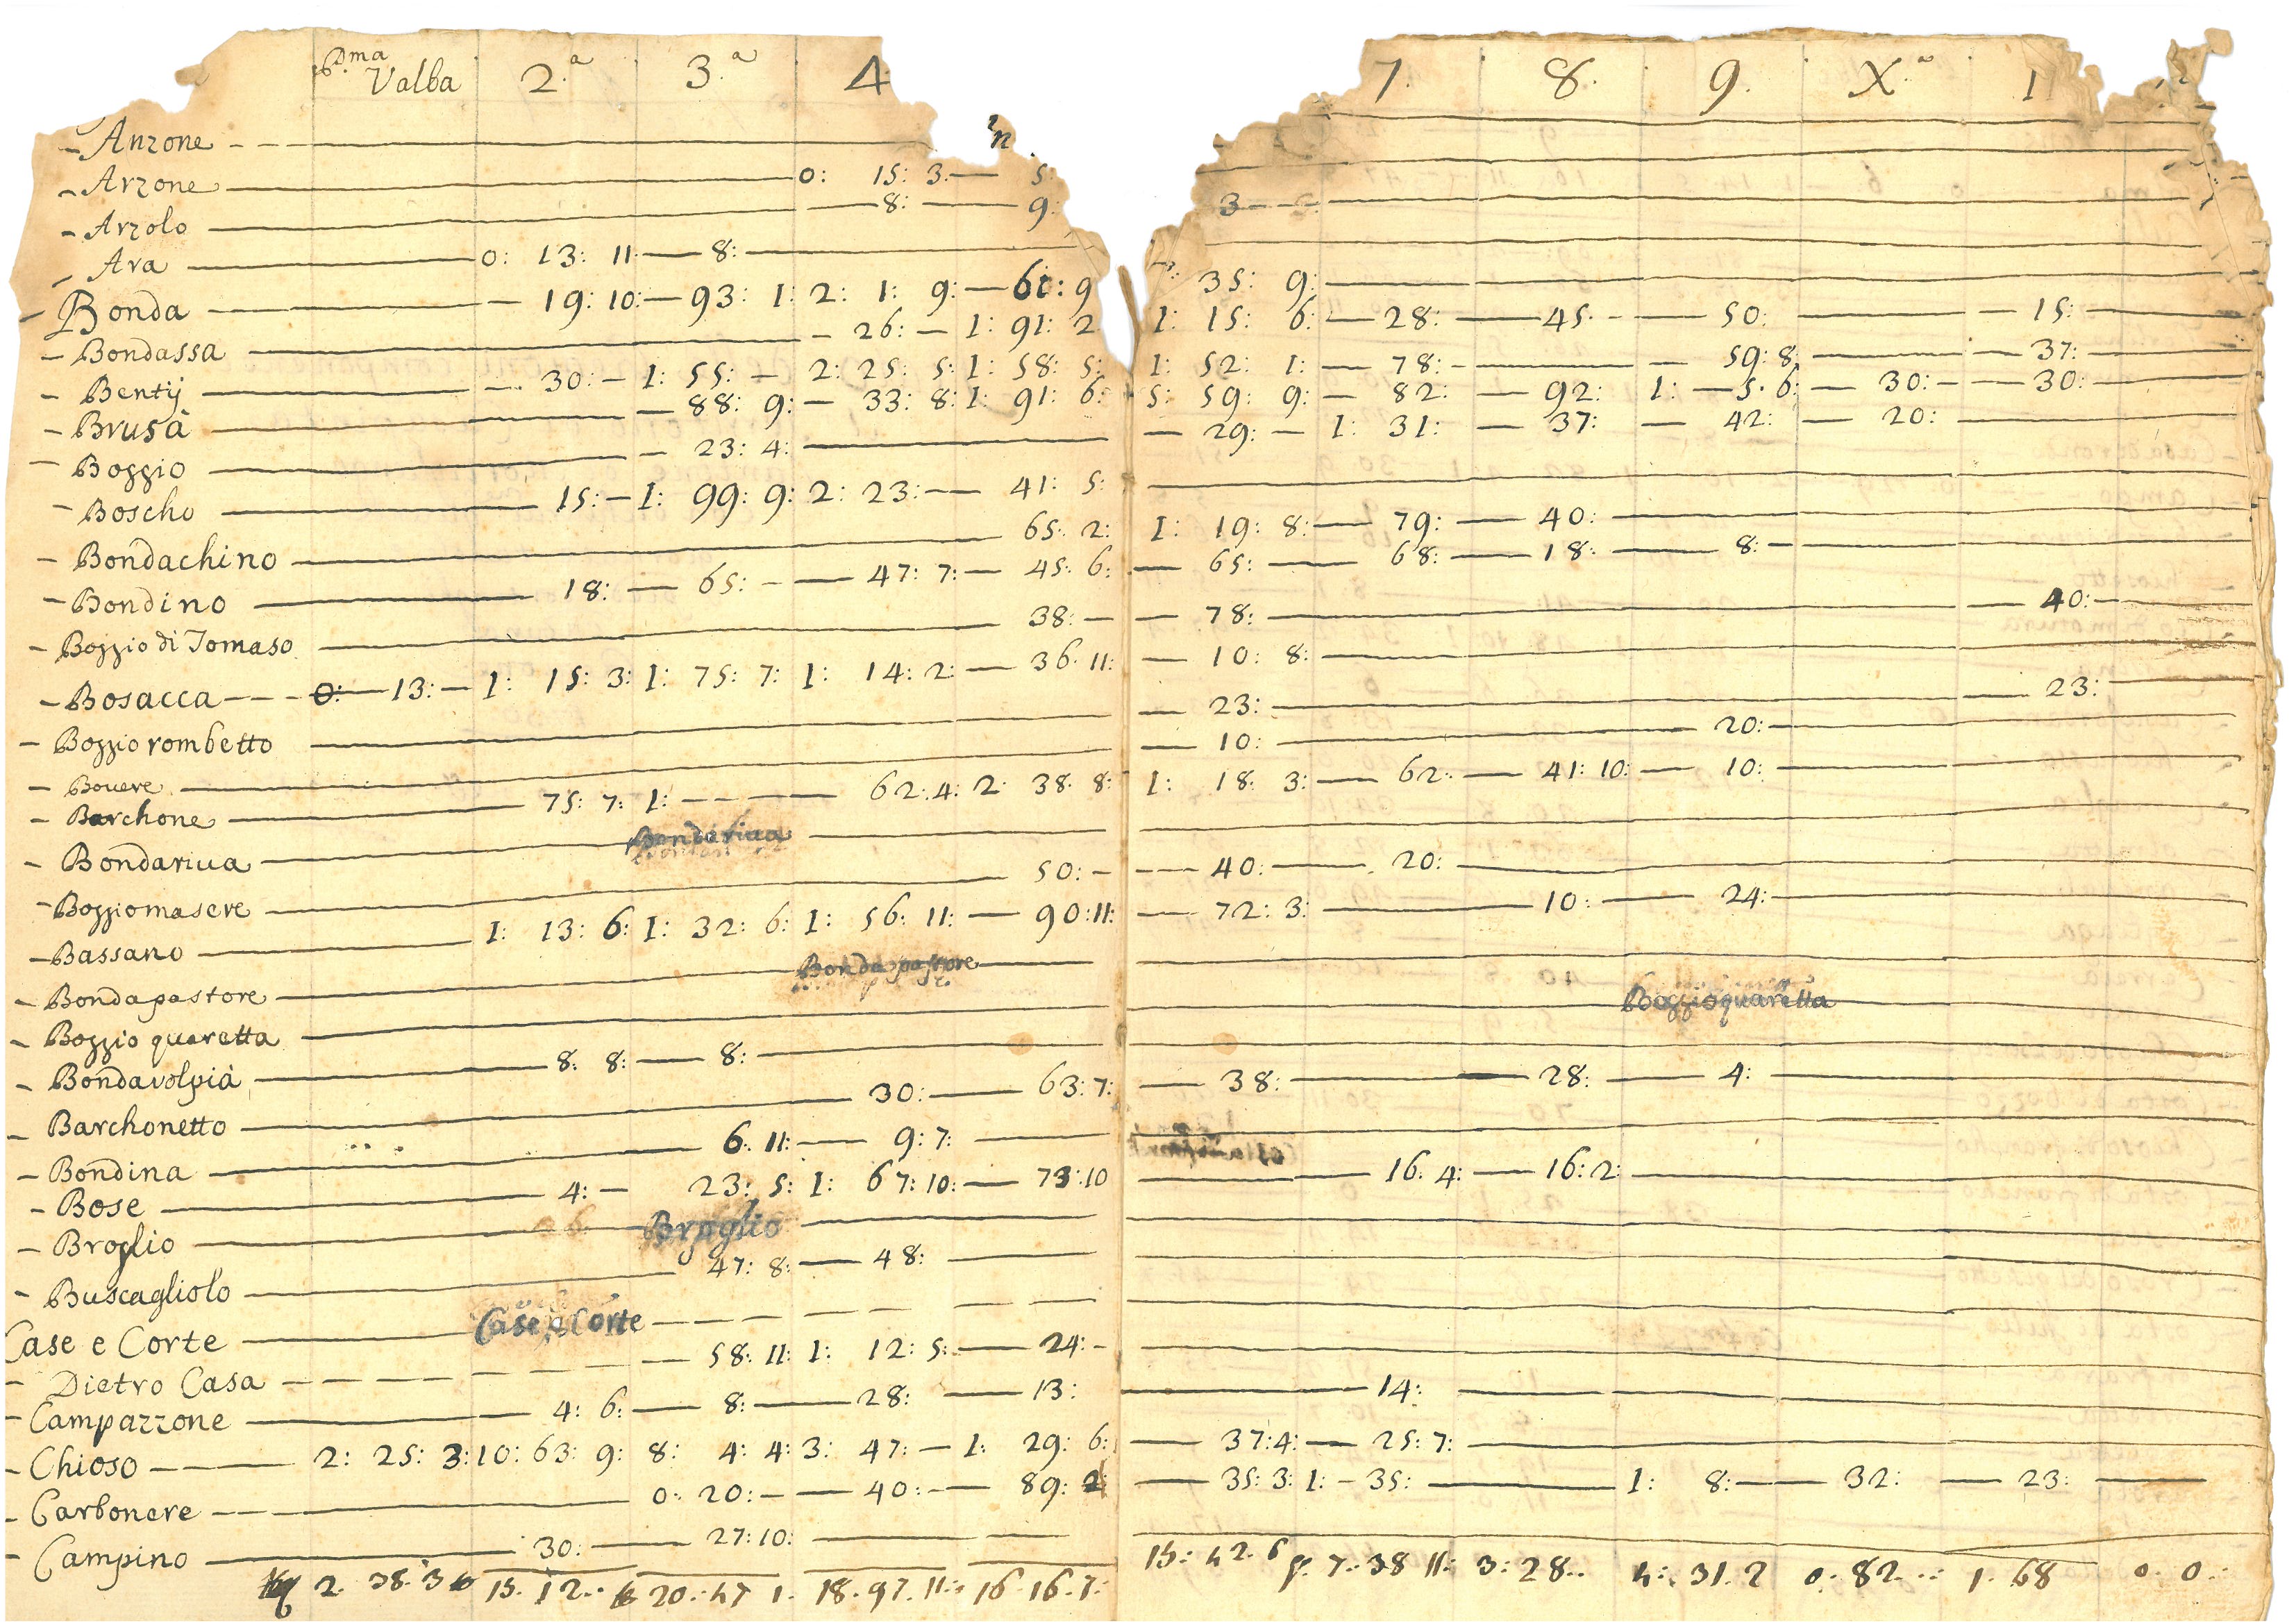 Valba 2.a 3.a 4 7. 8. 9. X.a 1
- Anzone - - -
- Arzone 0: 15: 3. 5:
- Arzolo 8: 9: 3
- Ara 0: 13: 11. 8:
- Bonda 19: 10: 93: 1: 2: 1: 9: 61: 9 35: 9:
- Bondassa 26: 1: 91: 2 1: 15: 6: 28: 45. 50: 15:
- Bentij 30: 1: 55: 2: 25: 5: 1: 58: 5: 1: 52: 1: 78: 59: 8: 37:
- Brusà 88: 9: 33: 8: 1: 91: 6: 5: 59: 9: 82: 92: 1: 5. 6: 30: 30:
- Boggio 23: 4: 29: 1: 31: 37: 42: 20:
- Boscho 15: 1: 99: 9: 2: 23: 41: 5:
- Bondachino 65: 2: 1: 19: 8: 79: 40:
- Bondino 18: 65: 47: 7: 45: 6: 65: 68: 18: 8:
- Boggio di Tomaso 38: 78: 40:
- Bosacca 0: 13: 1: 15: 3: 1: 75: 7: 1: 14: 2: 36. 11: 10: 8:
- Boggio rombetto 23: 23:
- Bovere 10: 20:
- Barchone 75: 7: 1: 62: 4: 2: 38: 8: 1: 18: 3: 62: 41: 10: 10:
- Bondariua Bondariua
- Boggiomasere 50: 40: 20:
- Bassano 1: 13: 6: 1: 32: 6: 1: 56: 11: 90: 11: 72: 3: 10: 24:
- Bondapastore Bondapastore
- Boggio quaretta Boggioquaretta
- Bondavolpià 8: 8: 8:
- Barchonetto 30: 63: 7: 38: 28: 4:
- Bondina 6: 11: 9: 7:
- Bose 4: 23: 5: 1: 67: 10: 73: 10 16: 4: 16: 2:
- Broglio Broglio
- Buscagliolo 47: 8: 48:
Case e Corte Case e Corte
- Dietro Casa 58: 11: 1: 12: 5: 24:
- Campazzone 4: 6: 8: 28: 13: 14:
- Chioso 2: 25: 3: 10: 63: 9: 8: 4: 4: 3: 47: 1: 29: 6: 37: 4: 25: 7:
- Carbonere 0: 20: 40: 89: 2 35: 3: 1: 35: 1: 8: 32: 23:
- Campino 30: 27: 10:
2. 38. 3 15. 12.. 20.. 47 1. 18. 97. 11: 16. 16. 7: 15: 42. 6 7.: 38 11: 3: 28.. 4:. 31. 2 0: 82.. 1. 68 0. 0..